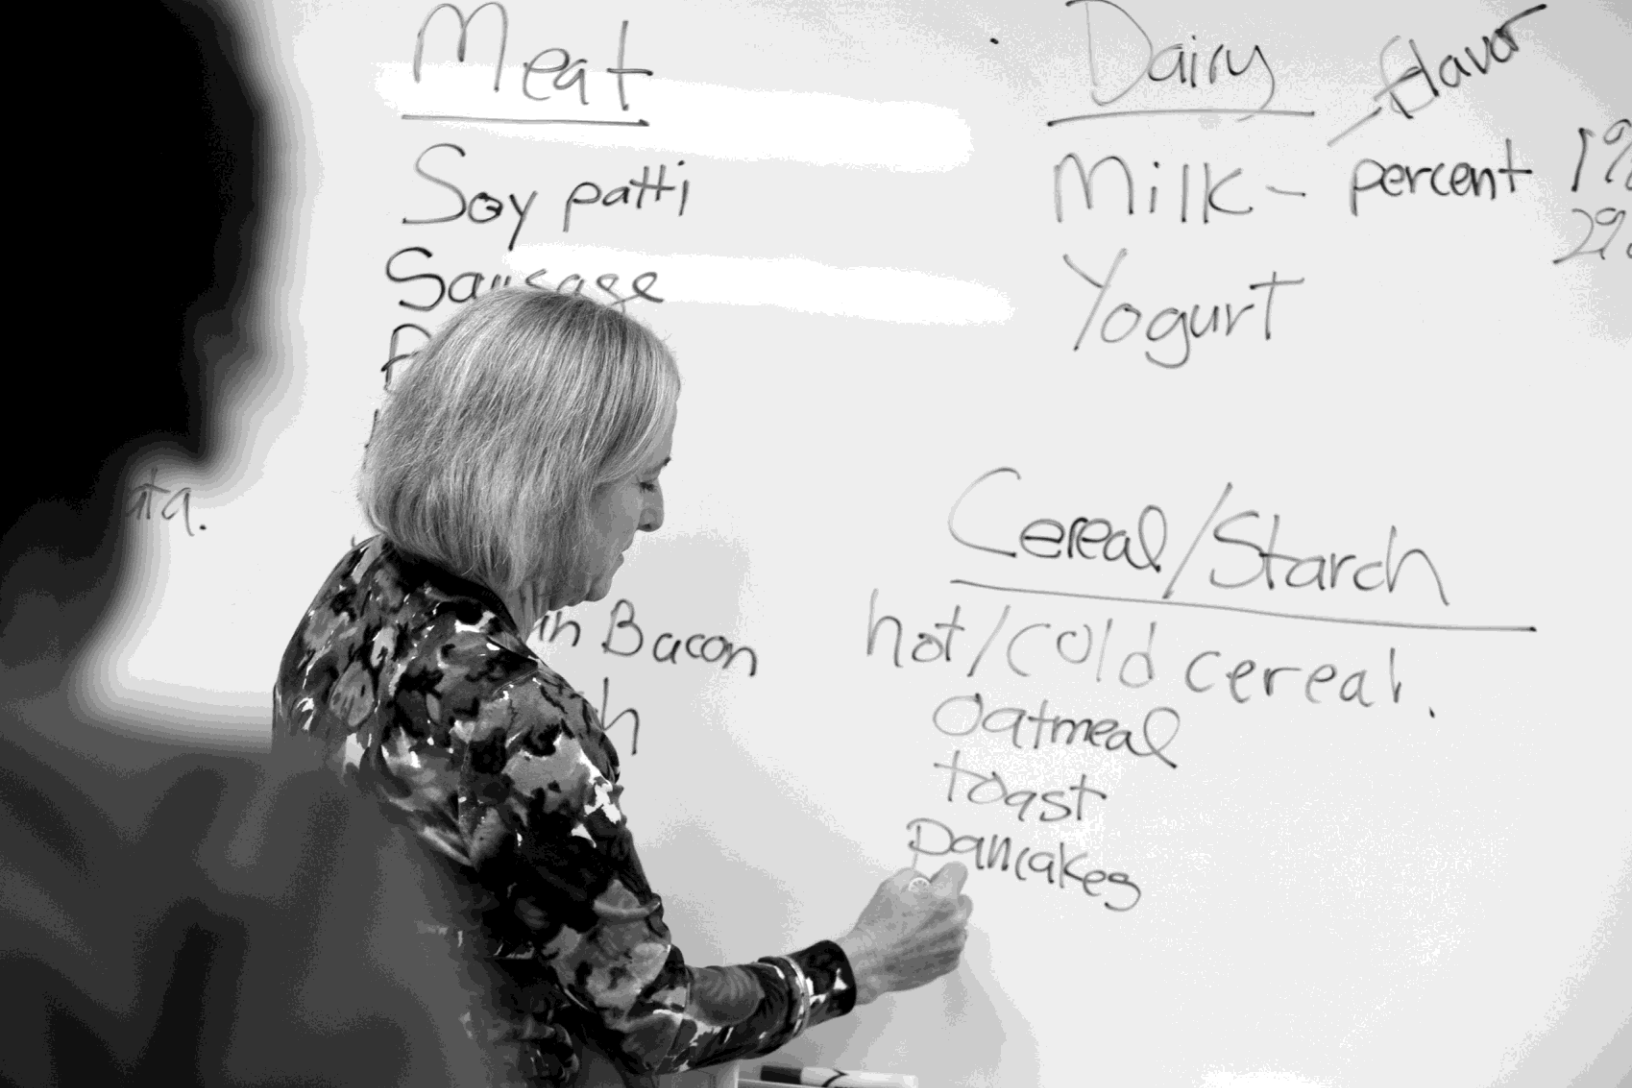 Meat
Soy patti
Sausage
Bacon
Dairy
flavor
Milk - percent 1%
2%
Yogurt
Cereal/Starch
hot/cold cereal.
Oatmeal
toast
Pancakes